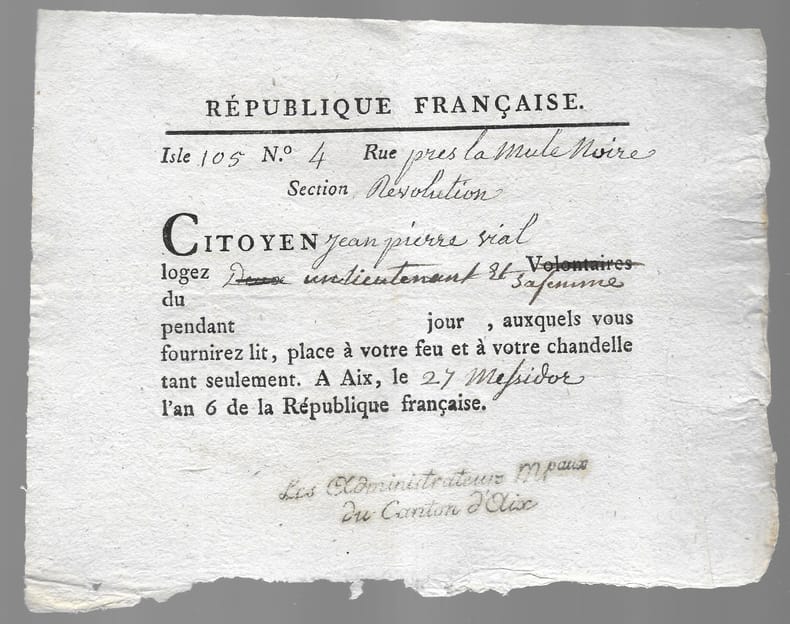 RÉPUBLIQUE FRANÇAISE.
Isle 105 N.º 4 Rue pres la Mule Noire
Section Révolution
CITOYEN jean pierre vial
logez Deux un lieutenant Et Volontaires
sa femme
du
pendant jour , auxquels vous
fournirez lit, place à votre feu et à votre chandelle
tant seulement. A Aix, le 27 Messidor
l'an 6 de la République française.
Les Administrateurs Mpaux
du Canton d'Aix